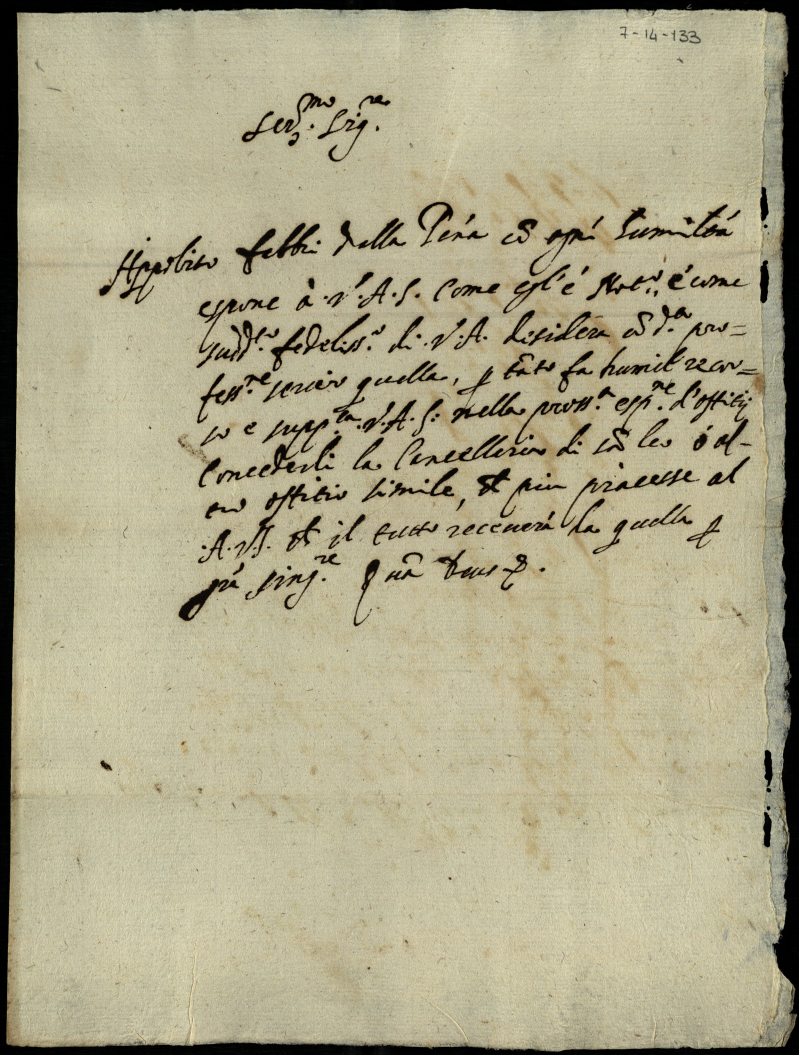 7-14-133
Ser.mo Sig.re
Hippolito Fabbri della Penna cõ ogni humiltà
espone à V. A. S. come egl'è Not.o, é come
sudd.to fedeliss.o di V. A. desidera cõ d.a pro=
fess.ne servir quella, p tãto fa humil recor=
so e supp.ca V. A. S: nella pross.a esp.ne d'offitij
concederli la Cancellaria di sã leo ó al-
tro offitio simile, che piu piacesse al
A. V. S. che il tutto receverà da quella p
gra sing.re Quã Deus &.